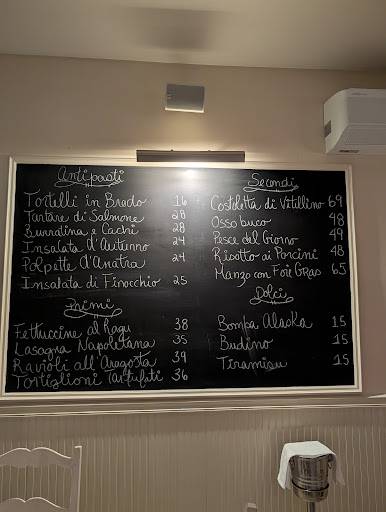 Antipasti
Tortelli in Brodo 16
Tartare di Salmone 28
Burradina e Cachi 28
Insalata d'Autunno 24
Polpette d'Anatra 24
Insalata di Finocchio 25
Primi
Fettuccine al Ragu 38
Lasagna Napoletana 35
Ravioli all'Aragosta 39
Tortiglioni Tartufati 36
Secondi
Costoletta di Vitillino 69
Ossobuco 48
Pesce del Giorno 49
Risotto ai Porcini 48
Manzo con Foie Gras 65
Dolci
Bomba Alaska 15
Budino 15
Tiramisu 15